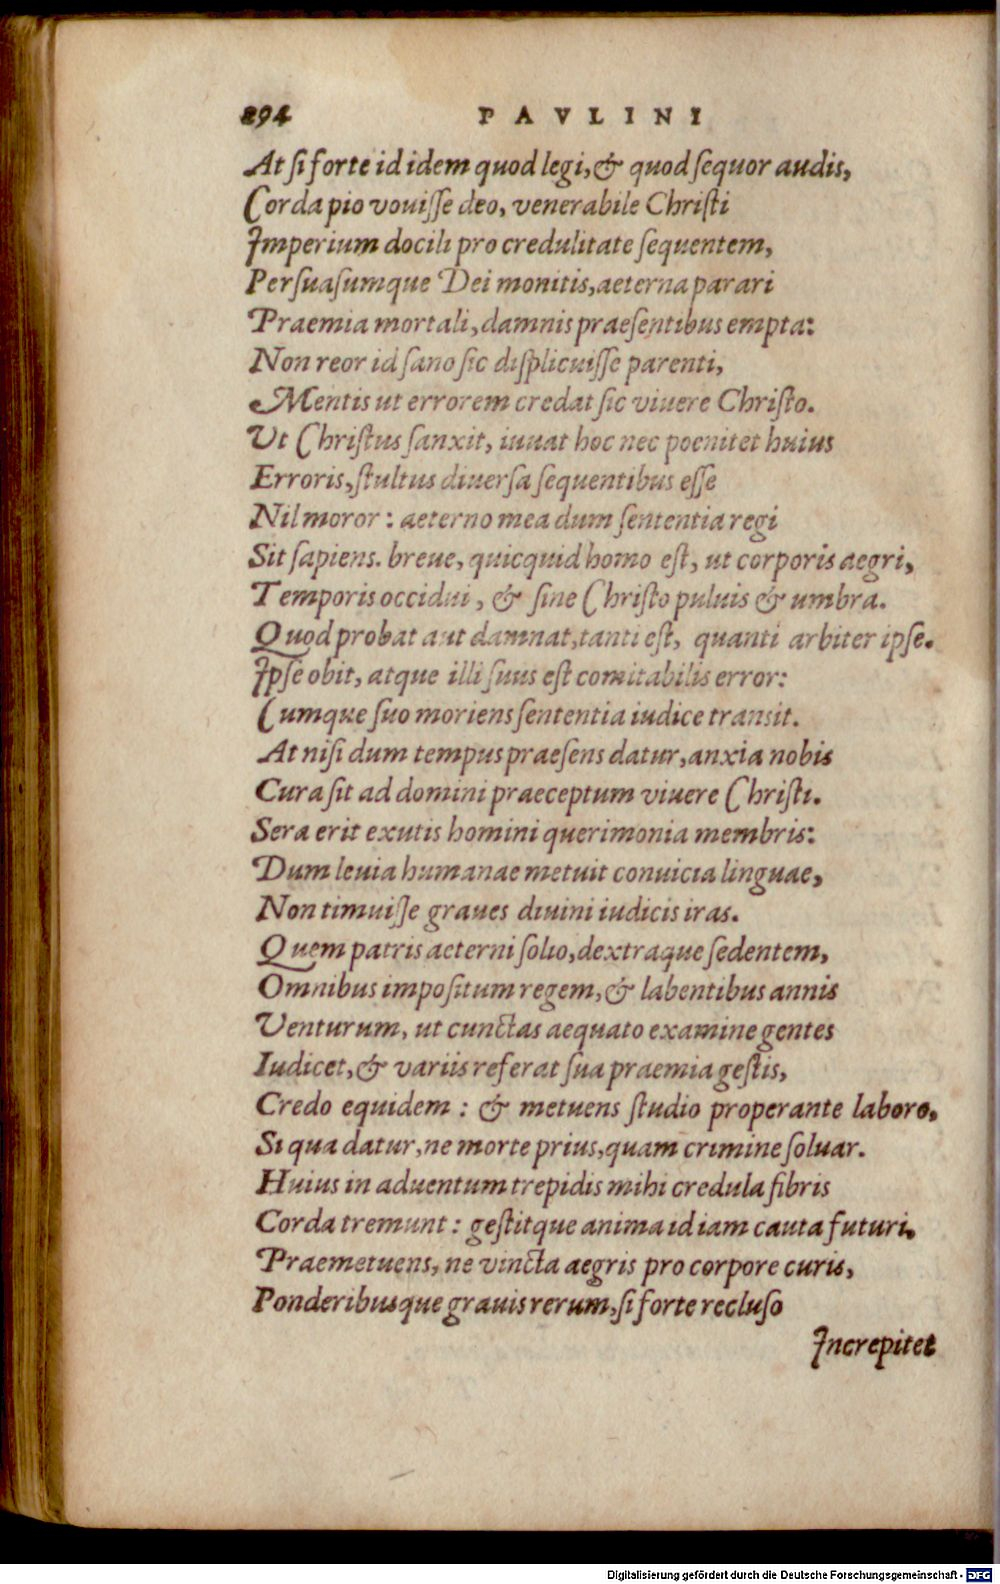 294 PAVLINI
At ſi forte id idem quod legi, & quod ſequor audis,
Corda pio vouiſſe deo, venerabile Chriſti
Imperium docili pro credulitate ſequentem,
Perſuaſumque Dei monitis, aeterna parari
Praemia mortali, damnis praeſentibus empta:
Non reor id ſano ſic diſplicuiſſe parenti,
Mentis ut errorem credat ſic viuere Chriſto.
Vt Chriſtus ſanxit, iuuat hoc nec poenitet huius
Erroris, ſtultus diuerſa ſequentibus eſſe
Nil moror: aeterno mea dum ſententia regi
Sit ſapiens. breue, quicquid homo eſt, ut corporis aegri,
Temporis occidui, & ſine Chriſto puluis & umbra.
Quod probat aut damnat, tanti eſt, quanti arbiter ipſe.
Ipſe obit, atque illi ſuus eſt comitabilis error:
Cumque ſuo moriens ſententia iudice tranſit.
At niſi dum tempus praeſens datur, anxia nobis
Cura ſit ad domini praeceptum viuere Chriſti.
Sera erit exutis homini querimonia membris:
Dum leuia humanae metuit conuicia linguae,
Non timuiſſe graues diuini iudicis iras.
Quem patris aeterni ſolio, dextraque ſedentem,
Omnibus impoſitum regem, & labentibus annis
Venturum, ut cunctas aequato examine gentes
Iudicet, & variis referat ſua praemia geſtis,
Credo equidem: & metuens ſtudio properante laboro,
Si qua datur, ne morte prius, quam crimine ſoluar.
Huius in aduentum trepidis mihi credula fibris
Corda tremunt: geſtitque anima id iam cauta futuri.
Praemetuens, ne vincta aegris pro corpore curis,
Ponderibusque grauis rerum, ſi forte recluſo
Increpitet
Digitalisierung gefördert durch die Deutsche Forschungsgemeinschaft - DFG